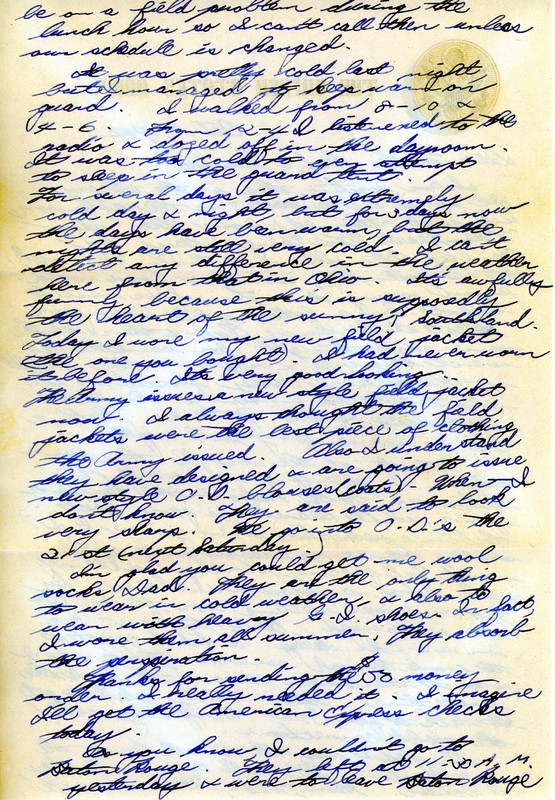 be on a field problem during the
lunch hour so I can't call then unless
our schedule is changed.
It was pretty cold last night
but I managed to keep warm on
guard. I walked from 8-10 &
4-6. From 12-4 I listened to the
radio & dozed off in the dayroom.
It was too cold to even attempt
to sleep in the guard tent.
For several days it was extremely
cold day & night, but for 3 days now
the days have been warm, but the
nights are still very cold. I can't
detect any difference in the weather
here from that in Ohio. It's awfully
funny because this is supposedly
the heart of the sunny Southland.
Today I wore my new field jacket
(the one you bought). I had never worn
it before. It's very good looking.
The Army issues a new style field jacket
now. I always thought the field
jackets were the best piece of clothing
the Army issued. Also I understand
they have designed & are going to issue
new style O.D. blouses (coats). When I
don't know. They are said to look
very sharp. We go into O.D.'s the
21st (next Saturday.)
I'm glad you could get me wool
socks Dad. They are the only thing
to wear in cold weather, & also to
wear with heavy G.I. shoes. In fact,
I wore them all summer. They absorb
the perspiration.
Thanks for sending the $50 money
order. I really needed it. I imagine
I'll get the American Express checks
today.
Do you know, I couldn't go to
Baton Rouge. They left at 11:30 A.M.
yesterday & were to leave Baton Rouge